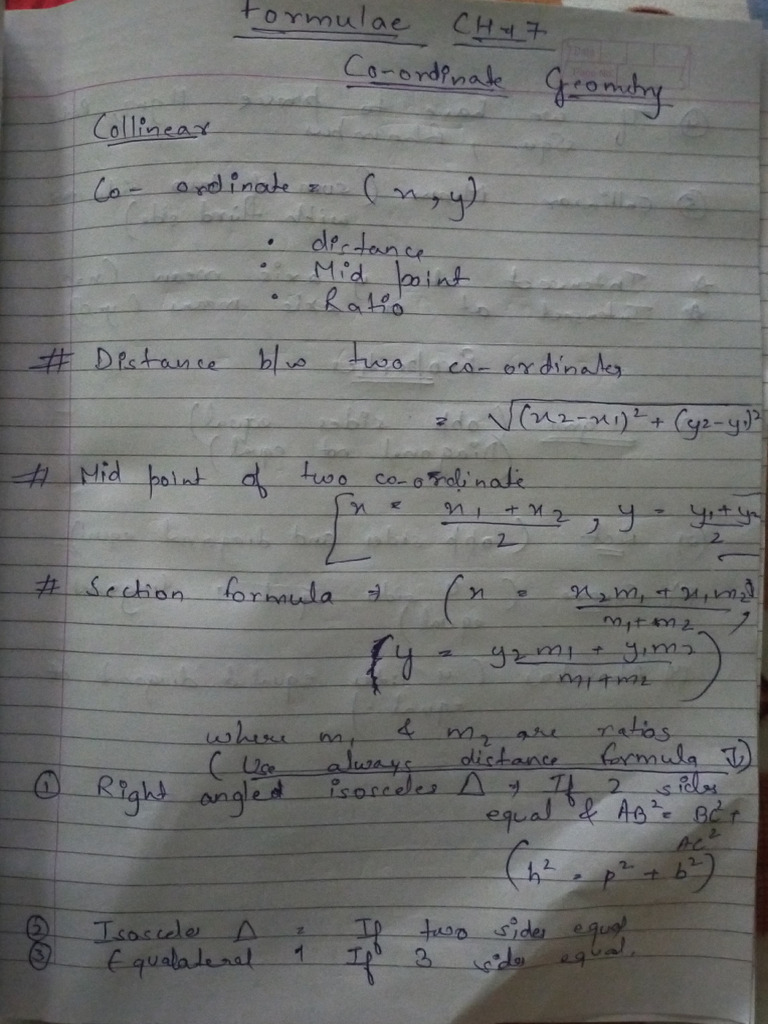 Formulae CH-7
Co-ordinate Geometry
Collinear
Co-ordinate = (x, y)
• distance
• Mid point
• Ratio
# Distance b/w two co-ordinates
= √(x2-x1)² + (y2-y1)²
# Mid point of two co-ordinate
[x = x1 + x2 / 2, y = y1 + y2 / 2
# Section formula ⇒ (x = x2m1 + x1m2 / m1+m2,
(y = y2m1 + y1m2 / m1+m2)
where m1 & m2 are ratios
(Use always distance formula ↓)
① Right angled isosceles Δ ⇒ If 2 sides
equal & AB² = BC² +
AC²
(h² = p² + b²)
② Isosceles Δ = If two sides equal
③ Equalateral If 3 sides equal.